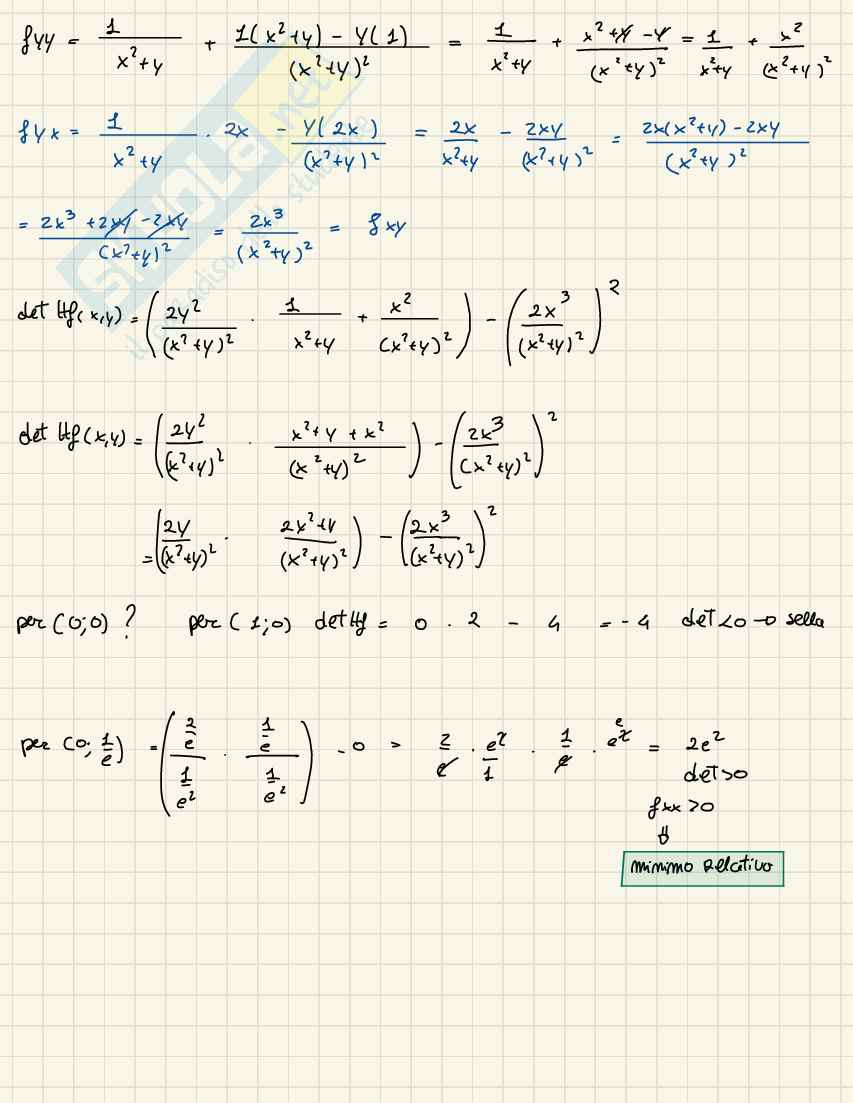 fyy = 1/(x²+y) + (1(x²+y) - y(1))/(x²+y)² = 1/(x²+y) + (x²+y-y)/(x²+y)² = 1/(x²+y) + x²/(x²+y)²
fyx = 1/(x²+y) · 2x - y(2x)/(x²+y)² = 2x/(x²+y) - 2xy/(x²+y)² = (2x(x²+y) - 2xy)/(x²+y)²
= (2x³ + 2xy - 2xy)/(x²+y)² = 2x³/(x²+y)² = fxy
det Hf(x,y) = (2y²/(x²+y)² · 1/(x²+y) + x²/(x²+y)²) - (2x³/(x²+y)²)²
det Hf(x,y) = (2y²/(x²+y)² · (x²+y+x²)/(x²+y)²) - (2x³/(x²+y)²)²
= (2y/(x²+y)² · (2x²+y)/(x²+y)²) - (2x³/(x²+y)²)²
per (0;0) ? per (1;0) det Hf = 0 · 2 - 4 = -4 det <0 → sella
per (0; 1/e) = ((2/e)/(1/e²) · (1/e)/(1/e²)) - 0 = 2/e · e²/1 · 1/e · e² = 2e²
det >0
fxx >0
⇓
minimo relativo
SKUOLA.net